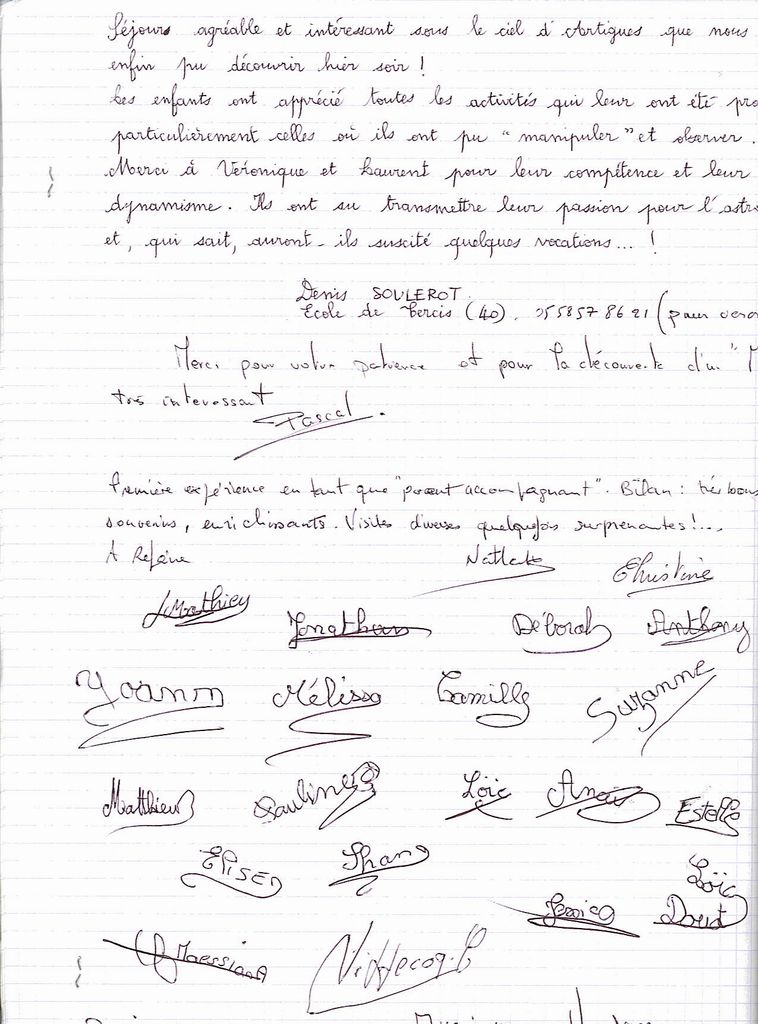 Séjour agréable et intéressant sous le ciel d'Artigues que nous
enfin pu découvrir hier soir !
Les enfants ont apprécié toutes les activités qui leur ont été pro
particulièrement celles où ils ont pu "manipuler" et observer.
Merci à Véronique et Laurent pour leur compétence et leur
dynamisme. Ils ont su transmettre leur passion pour l'astro
et, qui sait, auront-ils suscité quelques vocations... !
Denis SOULEROT
Ecole de Tercis (40). 0558578621 (pour
Merci pour votre patience et pour la découverte d'un "M
très interessant
Pascal.
Première expérience en tant que "parent accompagnant". Bilan : très bons
souvenirs, enrichissants. Visites diverses quelquefois surprenantes !...
A Refaire Christine
Mathieu Jonathan Déborah Anthony
Yoann Mélissa Camille Suzanne
Matthieu Pauline Loïc Anaïs Estelle
Loïc
Jessica